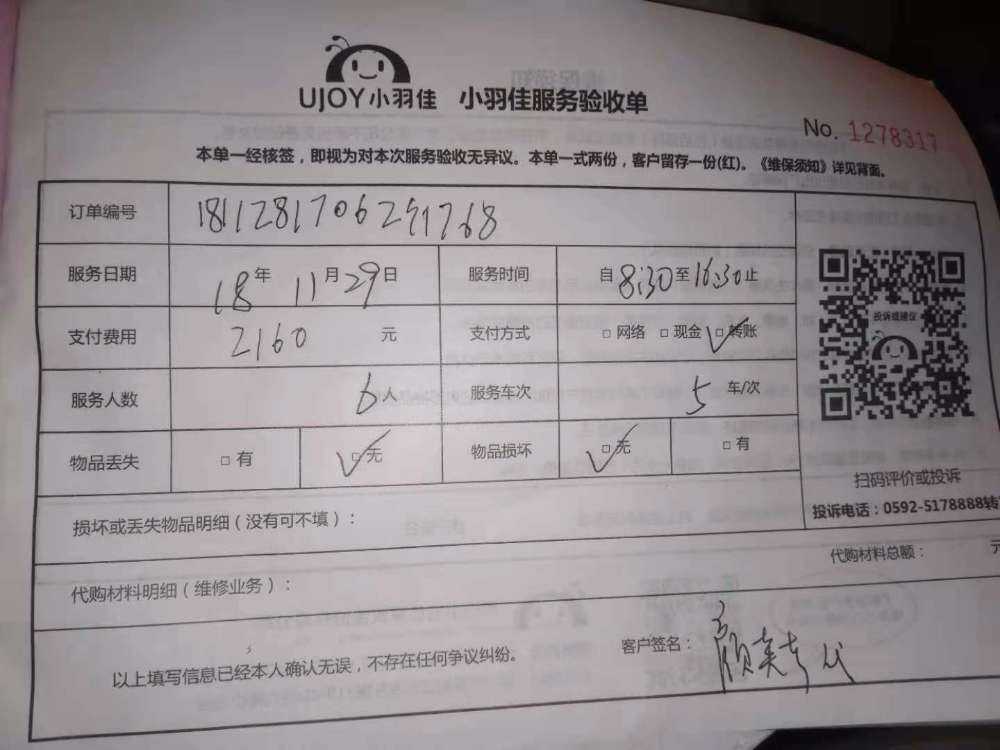 UJOY小羽佳 小羽佳服务验收单
No. 1278317
本单一经核签，即视为对本次服务验收无异议。本单一式两份，客户留存一份(红)。《维保须知》详见背面。
订单编号 181128170629 1768
服务日期 18年 11月29日 服务时间 自8:30至16:30止
支付费用 2160 元 支付方式 □网络 □现金 □转账
服务人数 6人 服务车次 5 车/次
物品丢失 □有 □无 物品损坏 □无 □有
投诉或建议
扫码评价或投诉
投诉电话：0592-5178888转
损坏或丢失物品明细（没有可不填）：
代购材料明细（维修业务）： 代购材料总额： 元
以上填写信息已经本人确认无误，不存在任何争议纠纷。 客户签名：